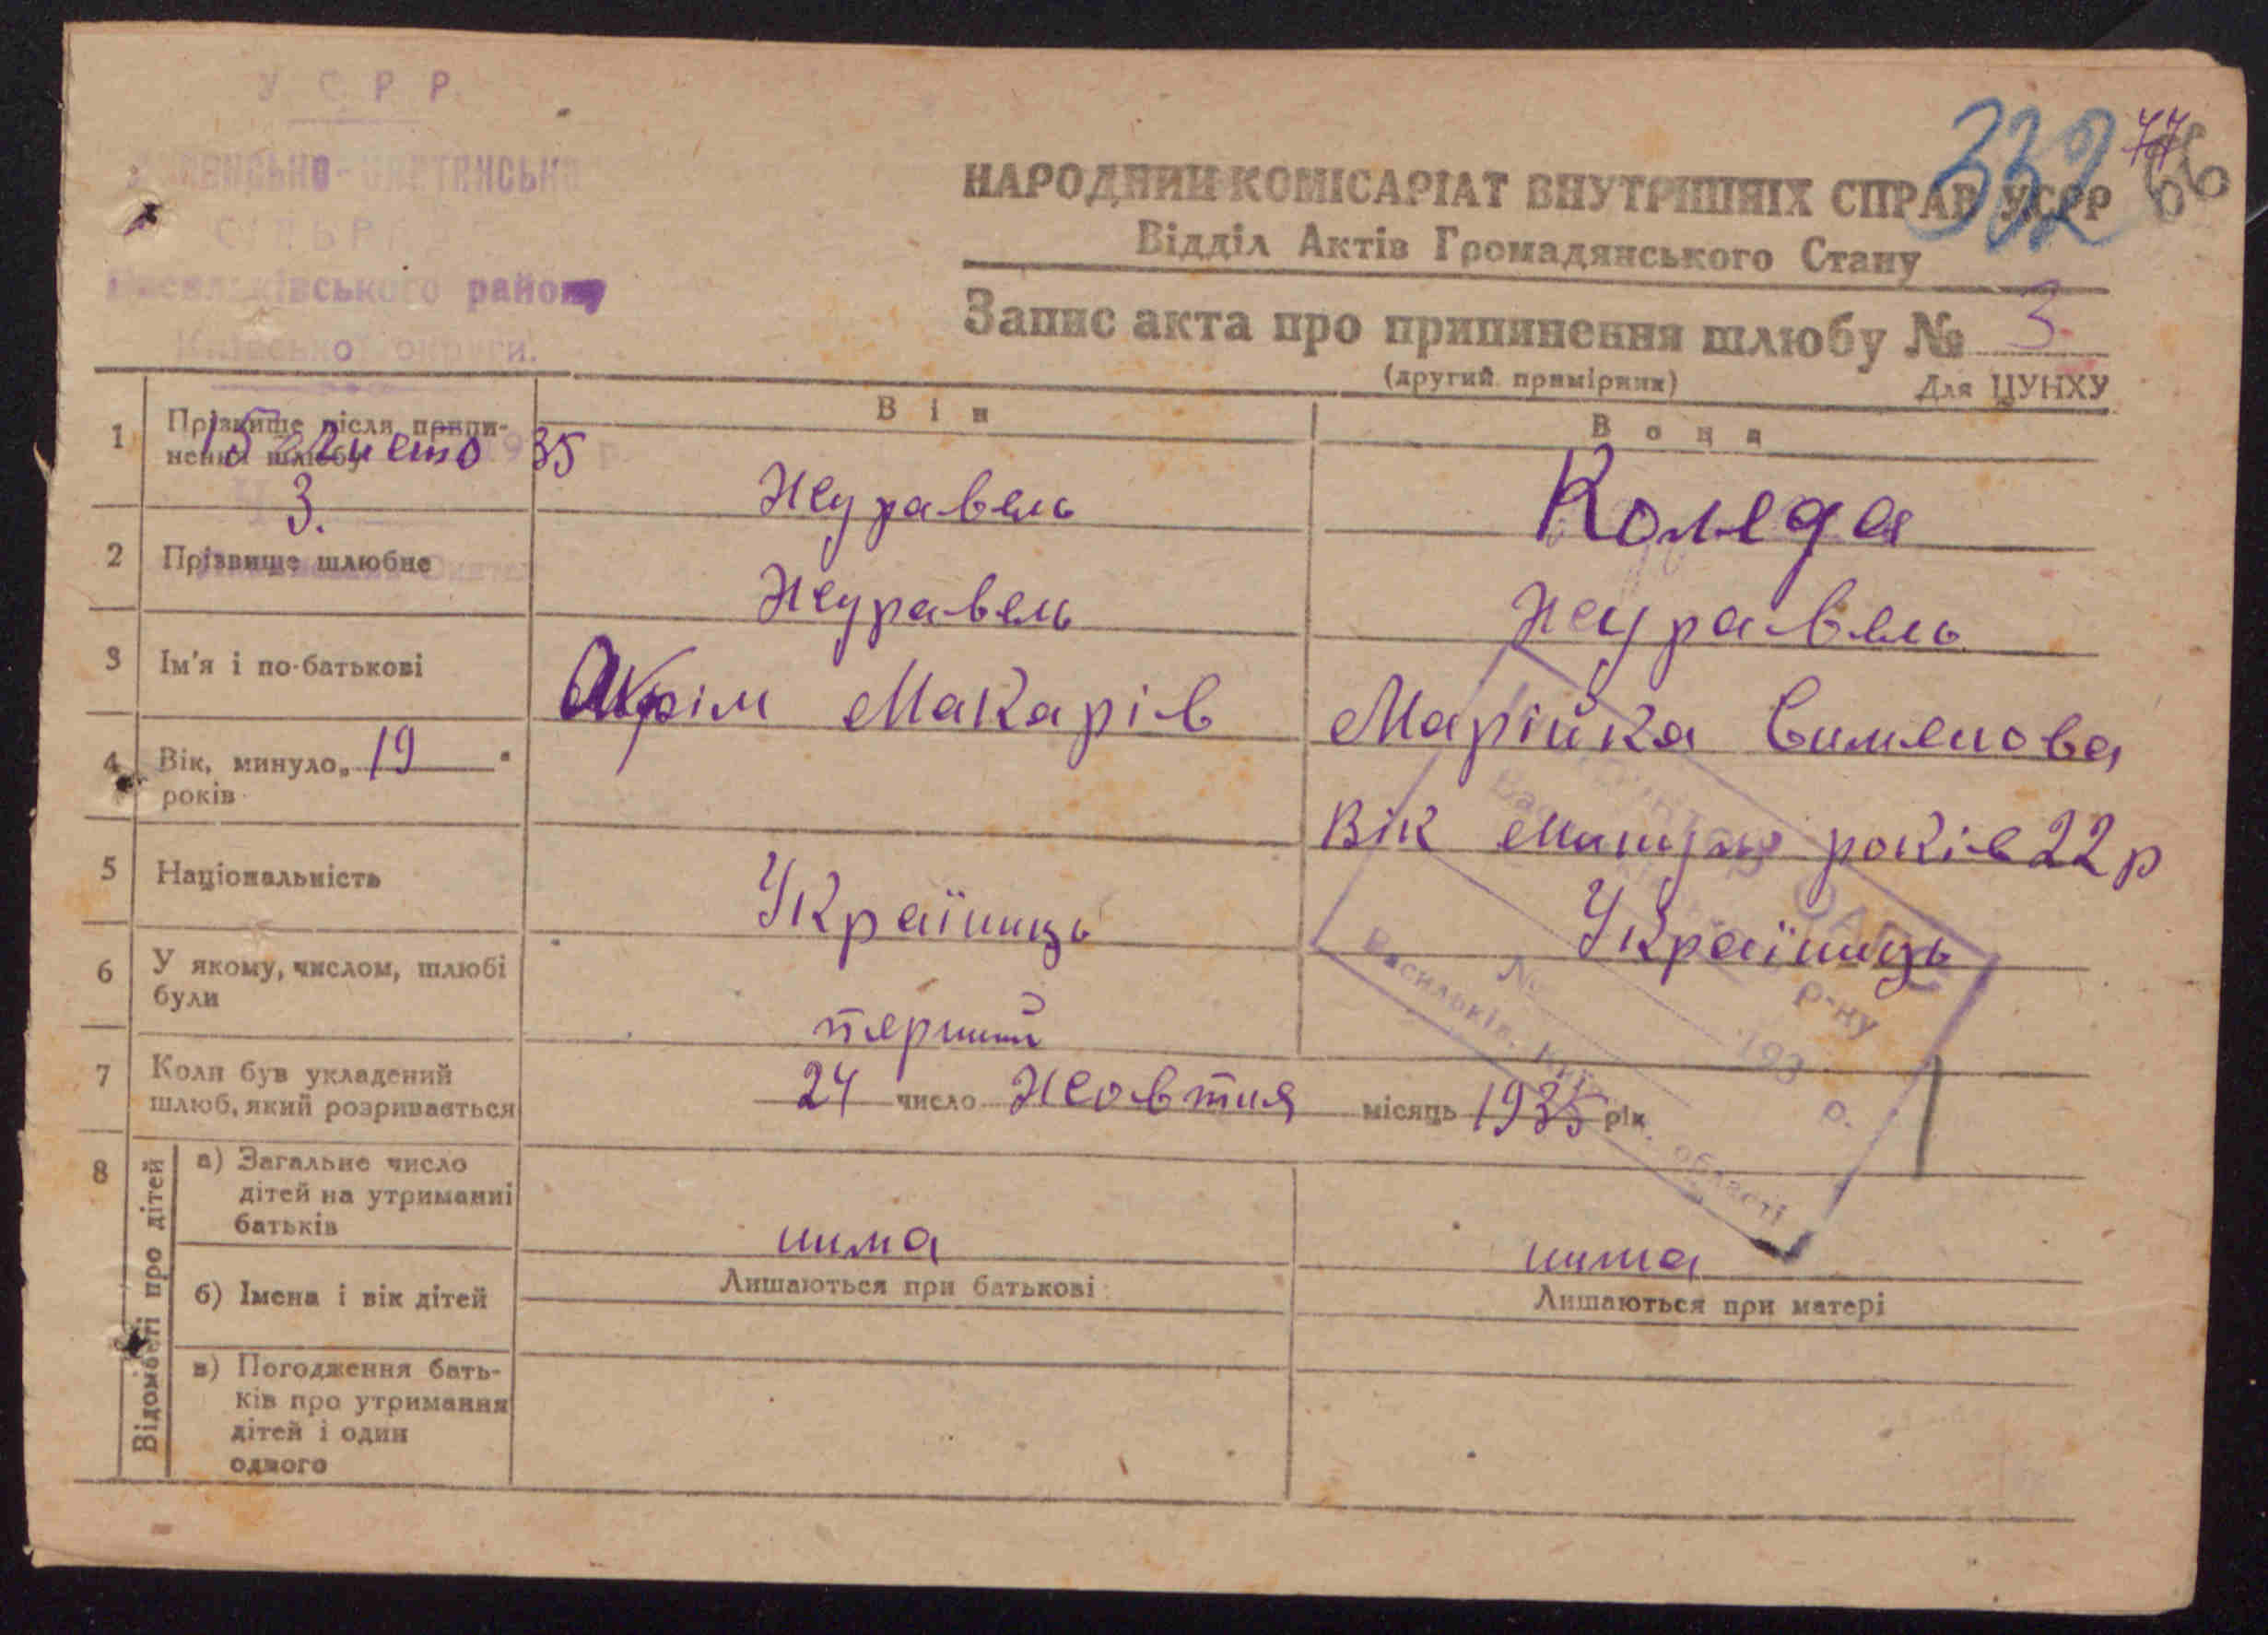 УСРР
СІЛЬР
району
округи.
332 77 66
НАРОДНИЙ КОМІСАРІАТ ВНУТРІШНІХ СПРАВ УСРР
Відділ Актів Громадянського Стану
Запис акта про припинення шлюбу № 3
(другий примірник) Для ЦУНХУ
Він Вона
1 Прізвище після припинення шлюбу Журавель Коляда
15 35
3.
2 Прізвище шлюбне Журавель Журавель
3 Ім'я і по-батькові Макарів Марійка Сименова
4 Вік, минуло 19 років Вік років 22 р
5 Національність Україниць Україниць
6 У якому, числом, шлюбі були перший
7 Коли був укладений шлюб, який розривається 24 число Жовтня місяць 1935 рік
8 Відомості про дітей
а) Загальне число дітей на утриманні батьків нима нима
Лишаються при батькові Лишаються при матері
б) Імена і вік дітей
в) Погодження батьків про утримання дітей і один одного
№
р-ну
193 р.
Васильків, Київ. області